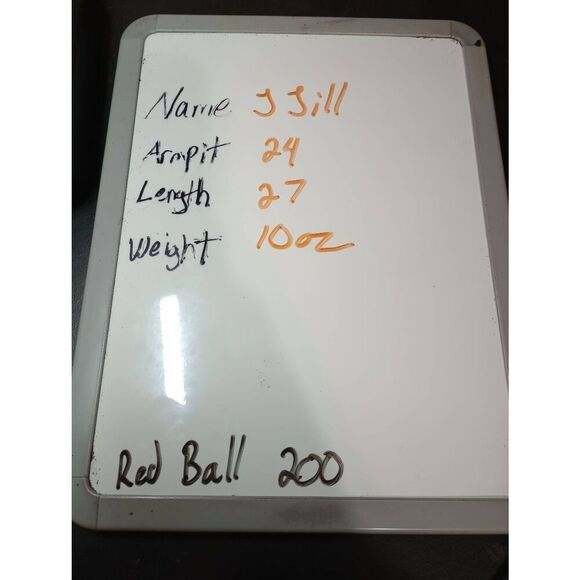 Name J Jill
Armpit 24
Length 27
Weight 10oz
Red Ball 200